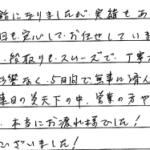 になりましたが、実績もあ
日も安心してお任せしていま
段取りもスムーズで、丁寧
響なく、5日間で無事に済ん
連日の炎天下の中、営業の方や
、本当にお疲れ様でした！
ございました！